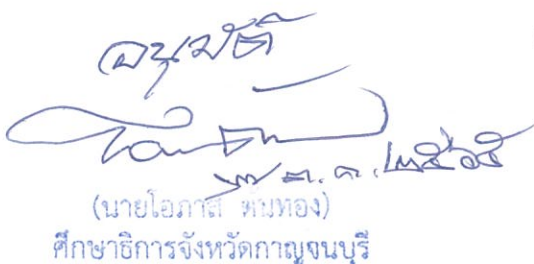 อนุมัติ
ต.ค. ๒๕๖๕
(นายโอภาส ต้นทอง)
ศึกษาธิการจังหวัดกาญจนบุรี